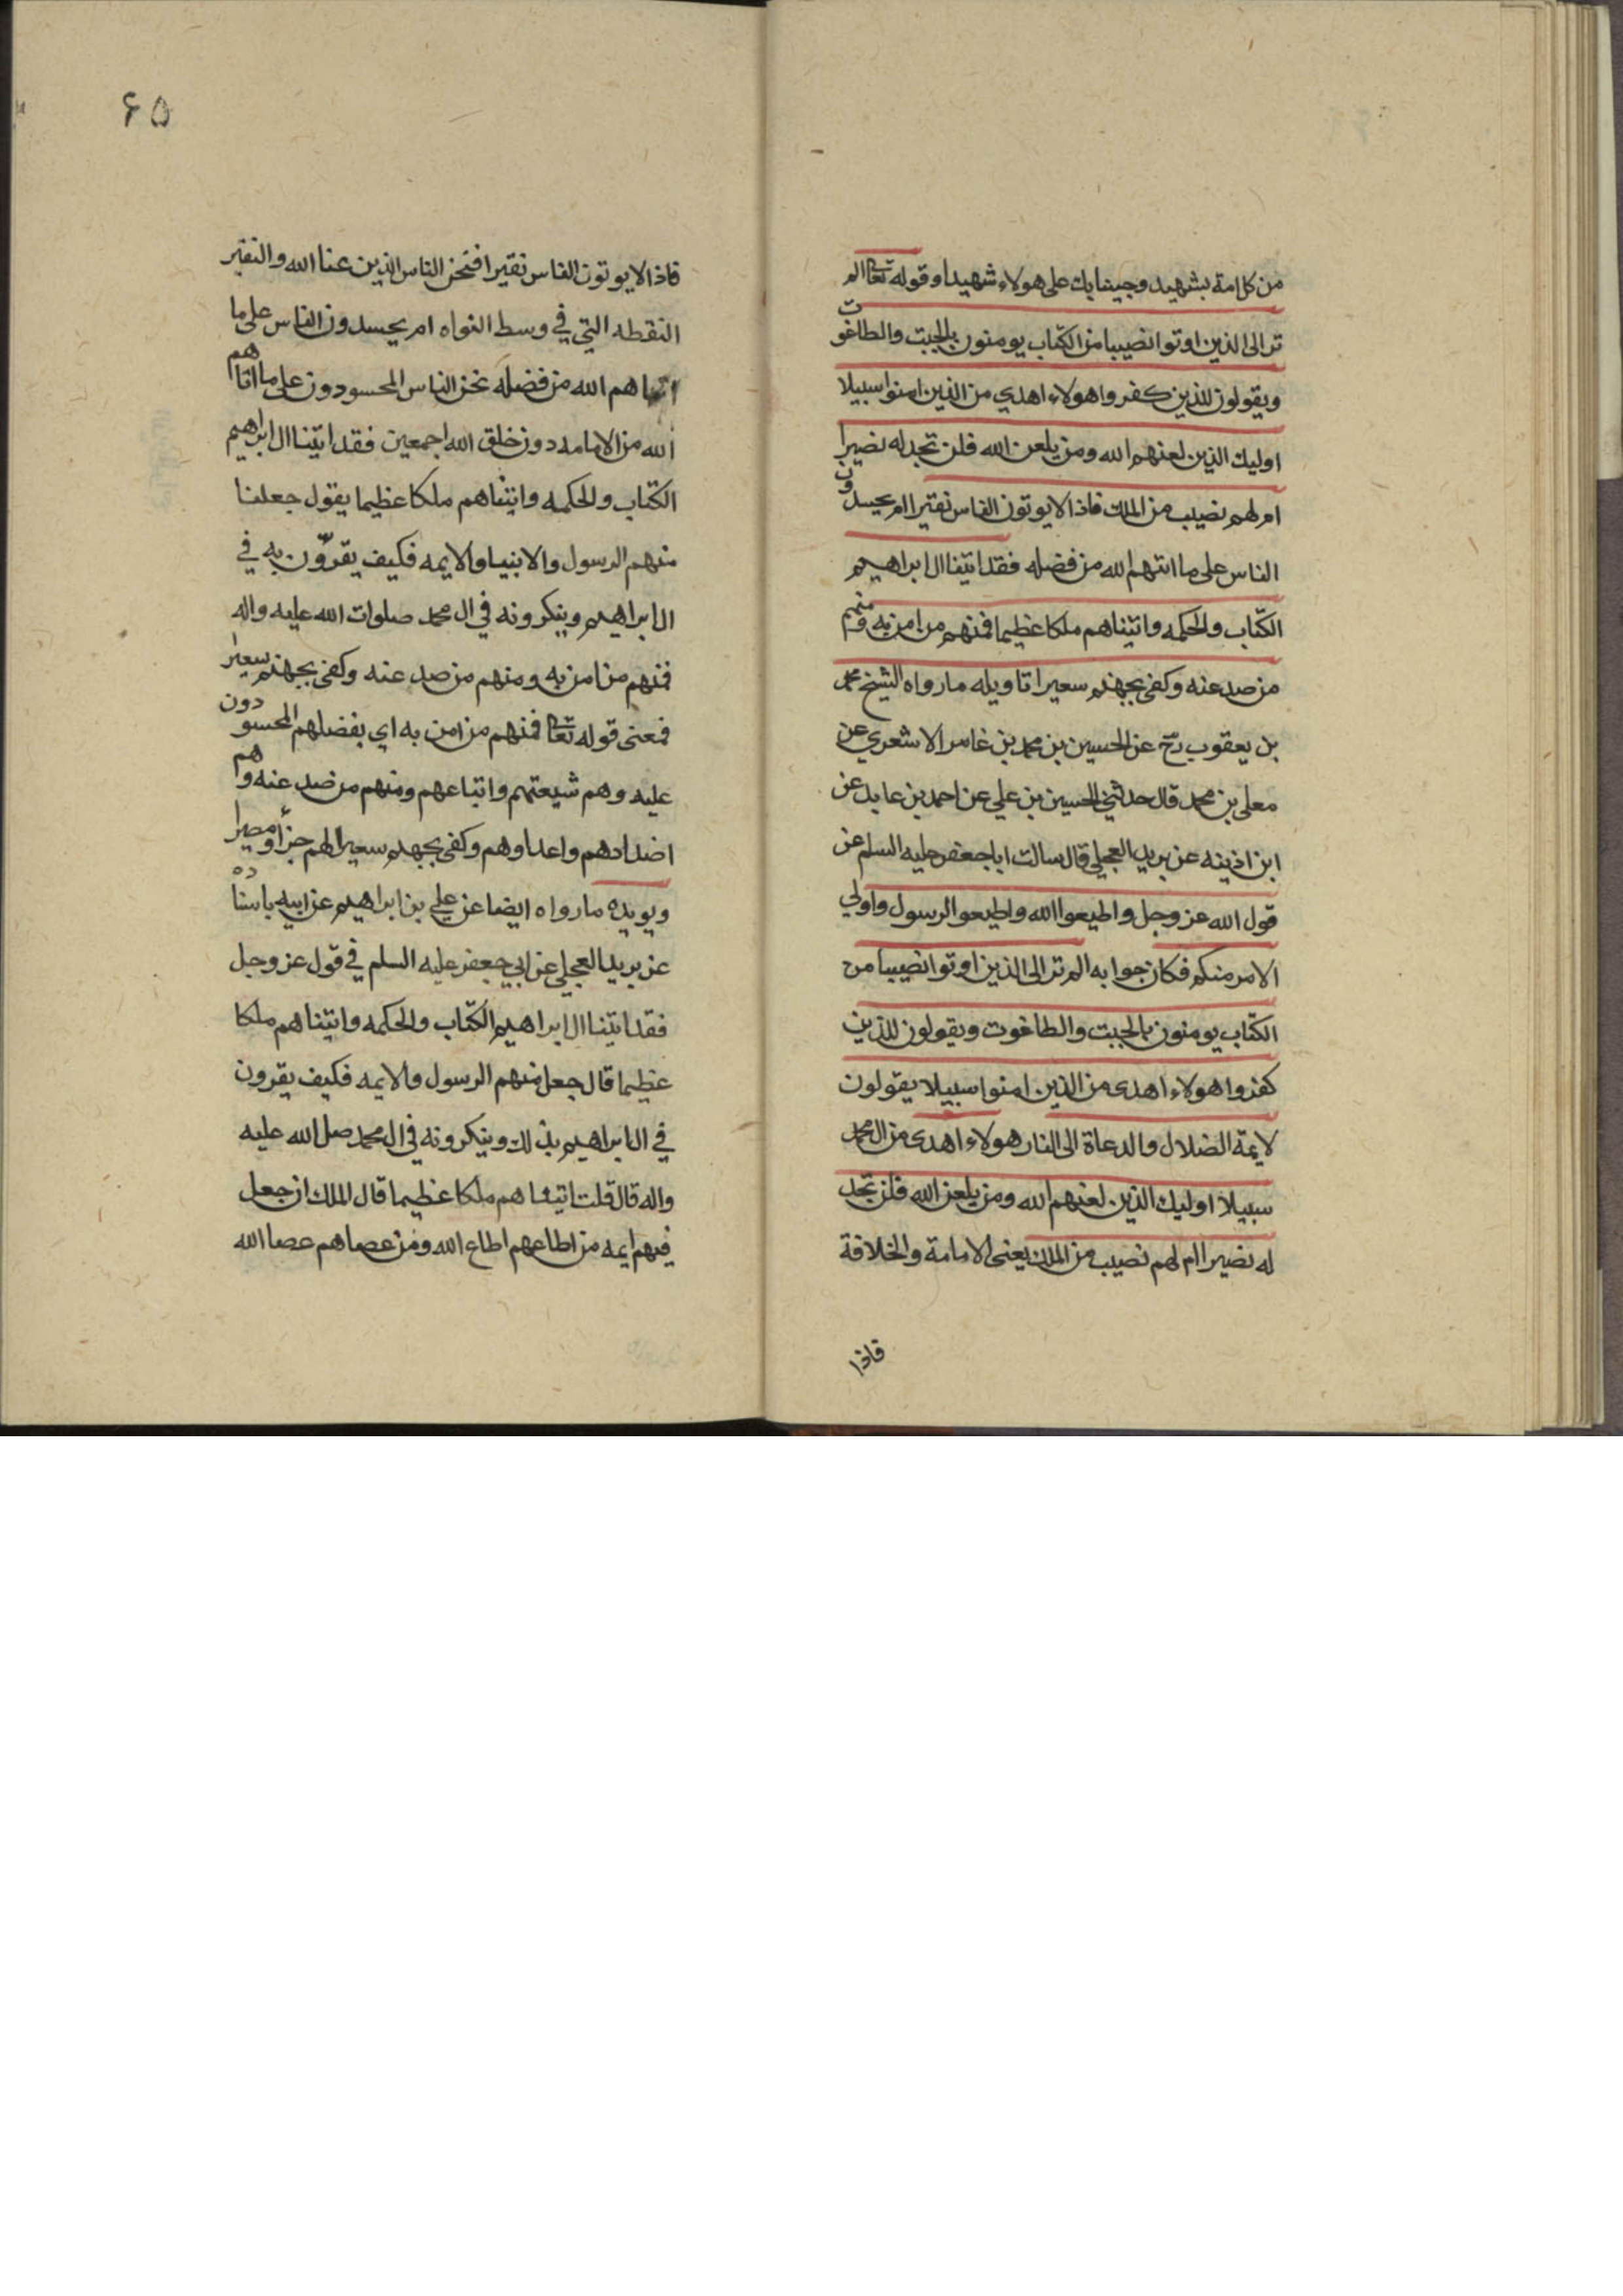 من كل امة بشهيد وجينا بك على هولاء شهيدا وقوله تعا الم
تر الى الذين اوتوا نصيبا من الكتاب يومنون بالجبت والطاغوت
ويقولون للذين كفروا هولاء اهدي من الذين امنوا سبيلا
اوليك الذين لعنهم الله ومن يلعن الله فلن تجد له نصيرا
ام لهم نصيب من الملك فاذا لا يوتون الناس نقيرا ام يحسدون
الناس على ما اتهم الله من فضله فقد اتينا ال ابراهيم
الكتاب والحكمه واتيناهم ملكا عظيما فمنهم من امن به ومنهم
من صد عنه وكفى بجهنم سعيرا تاويله ما رواه الشيخ محمد
بن يعقوب رح عن الحسين بن محمد بن عامر الاشعري عن
معلى بن محمد قال حدثني الحسين بن علي عن احمد بن عايد عن
ابن اذينه عن بريد العجلي قال سالت ابا جعفر عليه السلم عن
قول الله عز وجل واطيعوا الله واطيعوا الرسول واولي
الامر منكم فكان جوابه الم تر الى الذين اوتوا نصيبا من
الكتاب يومنون بالجبت والطاغوت ويقولون للذين
كفروا هولاء اهدى من الذين امنوا سبيلا يقولون
لايمة الضلال والدعاة الى النار هولاء اهدى من ال محمد
سبيلا اوليك الذين لعنهم الله ومن يلعن الله فلن تجد
له نصيرا ام لهم نصيب من الملك يعنى الامامة والخلافة
فاذا
۶۵
فاذا لا يوتون الناس نقيرا فنحن الناس الذين عنا الله والنقير
النقطه التي في وسط النواه ام يحسدون الناس على ما
اتاهم الله من فضله نحن الناس المحسودون على ما اتاهم
الله من الامامه دون خلق الله اجمعين فقد اتينا ال ابراهيم
الكتاب والحكمه واتيناهم ملكا عظيما يقول جعلنا
منهم الرسول والانبيا والايمه فكيف يقرّون به في
ال ابراهيم وينكرونه في ال محمد صلوات الله عليه واله
فمنهم من امن به ومنهم من صد عنه وكفى بجهنم سعيرا
فمعنى قوله تعا فمنهم من امن به اي بفضلهم المحسودون
عليه وهم شيعتهم واتباعهم ومنهم من صد عنه وهم
اضدادهم واعداوهم وكفى بجهنم سعيرا لهم جزأ ومصيرا
ويويده ما رواه ايضا عن علي بن ابراهيم عن ابيه باسناده
عن بريد العجلي عن ابي جعفر عليه السلم في قول عز وجل
فقد اتينا ال ابراهيم الكتاب والحكمه واتيناهم ملكا
عظيما قال جعل منهم الرسول والايمه فكيف يقرون
في ال ابراهيم بذلك وينكرونه في ال محمد صل الله عليه
واله قال قلت اتيناهم ملكا عظيما قال الملك ان جعل
فيهم ايمه من اطاعهم اطاع الله ومن عصاهم عصا الله